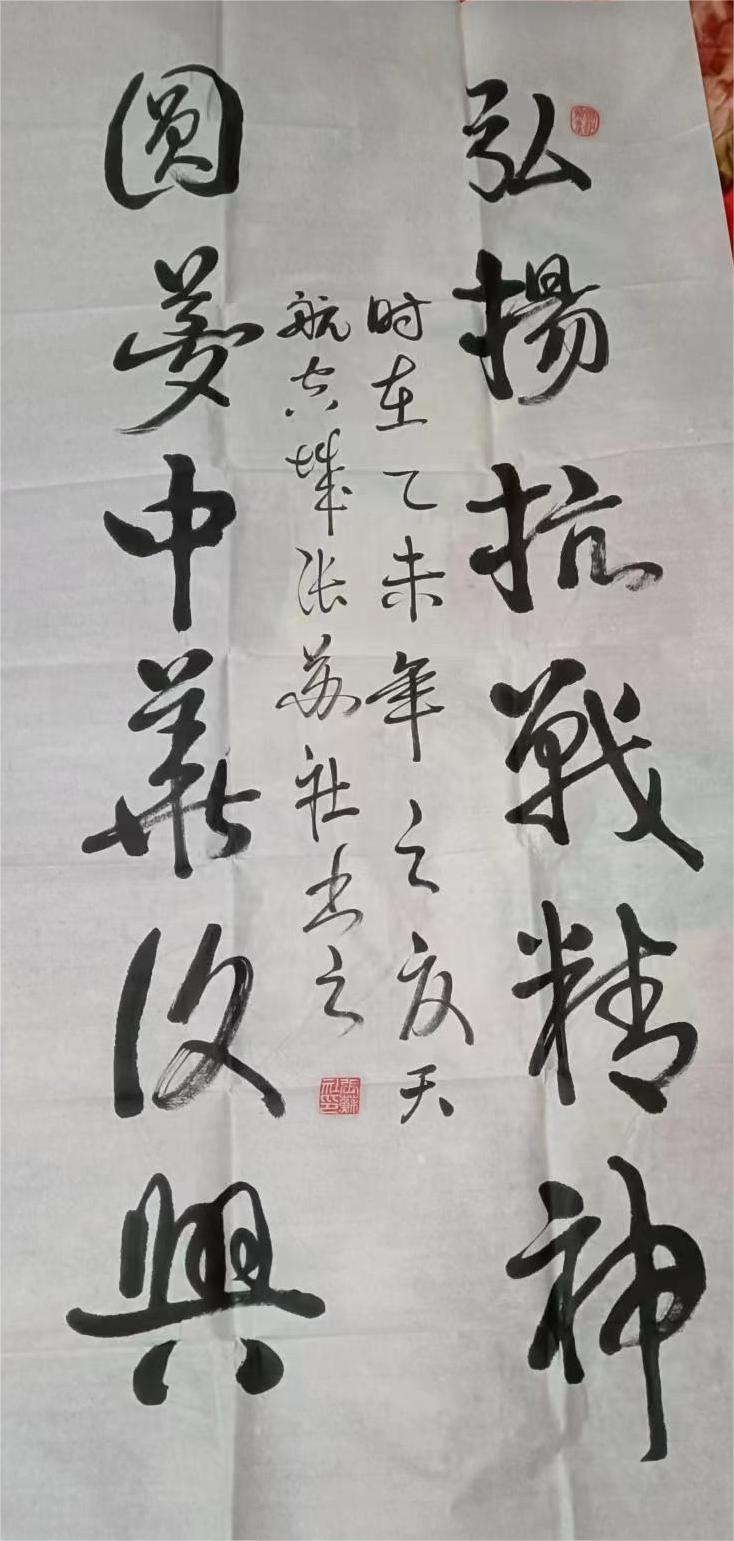 弘揚抗戰精神
时在乙未年之夏天
航空城张苏社书之
張蘇社印
圓夢中華復興